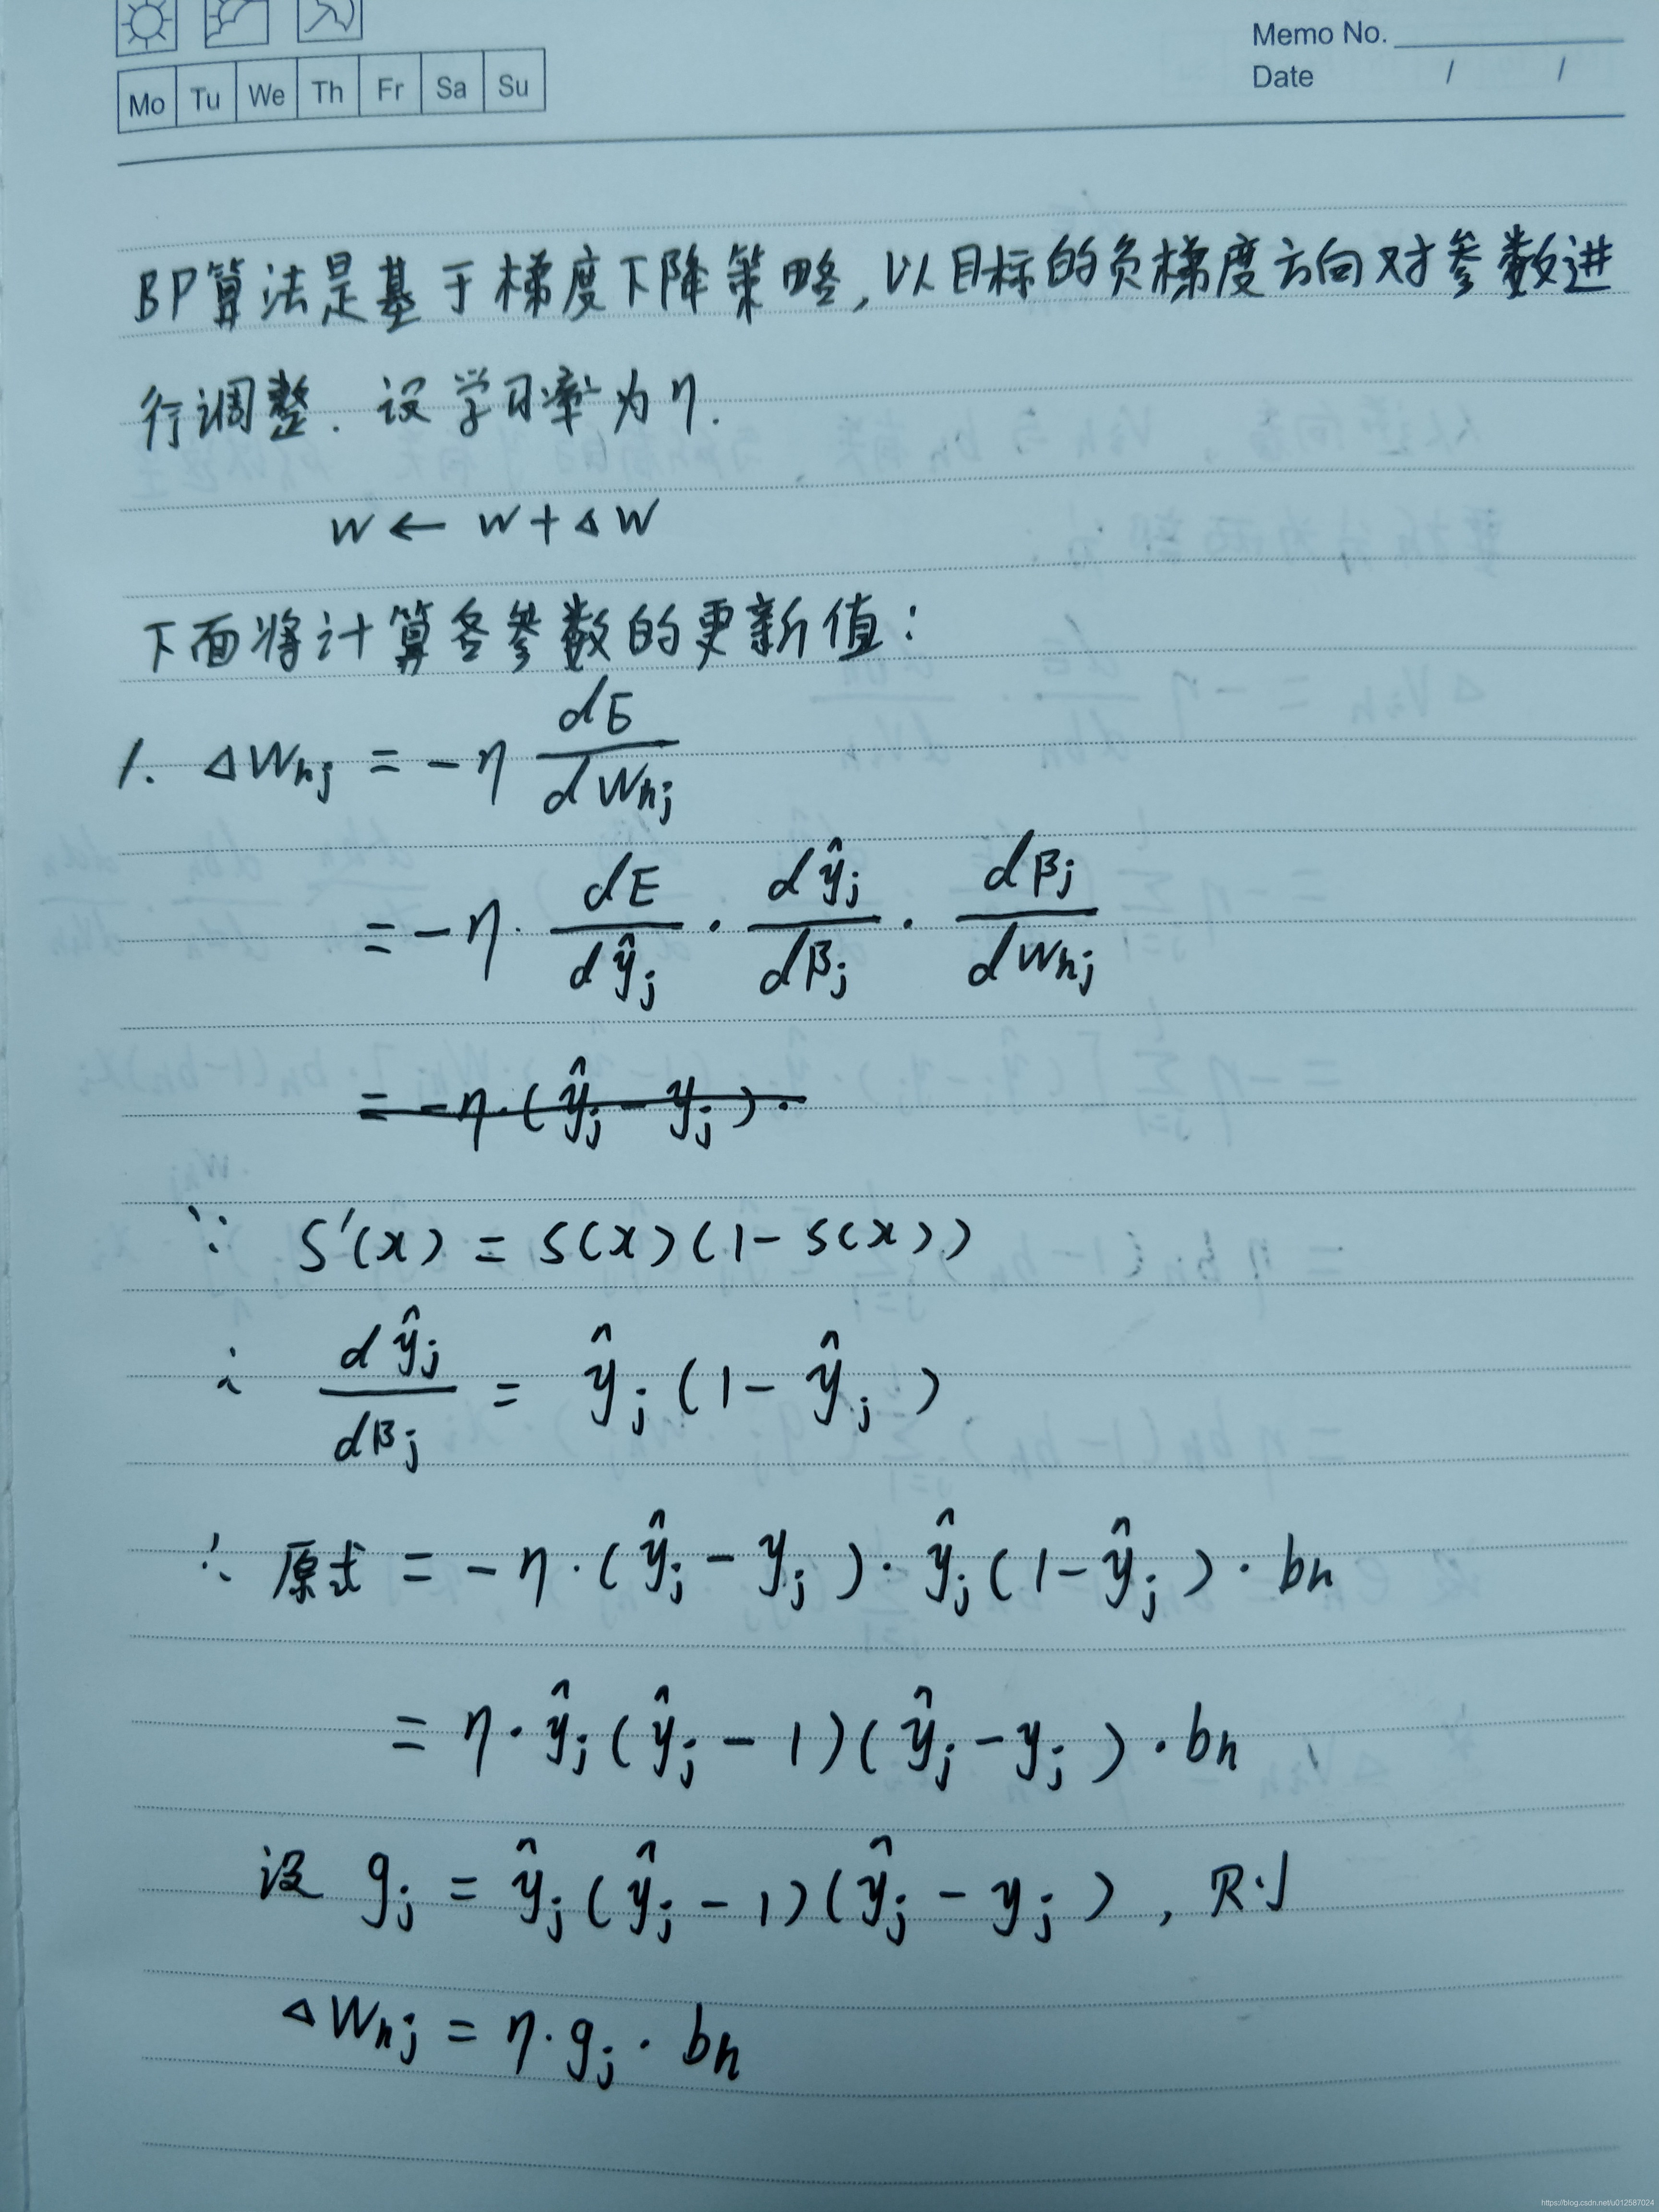 Memo No.
Date / /
Mo Tu We Th Fr Sa Su
BP算法是基于梯度下降策略,以目标的负梯度方向对参数进
行调整. 设学习率为η.
w ← w + Δw
下面将计算各参数的更新值:
1. ΔWhj = -η dE/dWhj
= -η · dE/dŷj · dŷj/dβj · dβj/dWhj
= -η·(ŷj - yj)·
∵ S'(x) = S(x)(1-S(x))
∴ dŷj/dβj = ŷj(1-ŷj)
∴ 原式 = -η·(ŷj-yj)·ŷj(1-ŷj)·bh
= η·ŷj(ŷj-1)(ŷj-yj)·bh
设 gj = ŷj(ŷj-1)(ŷj-yj), 则
ΔWhj = η·gj·bh
https://blog.csdn.net/u012587024